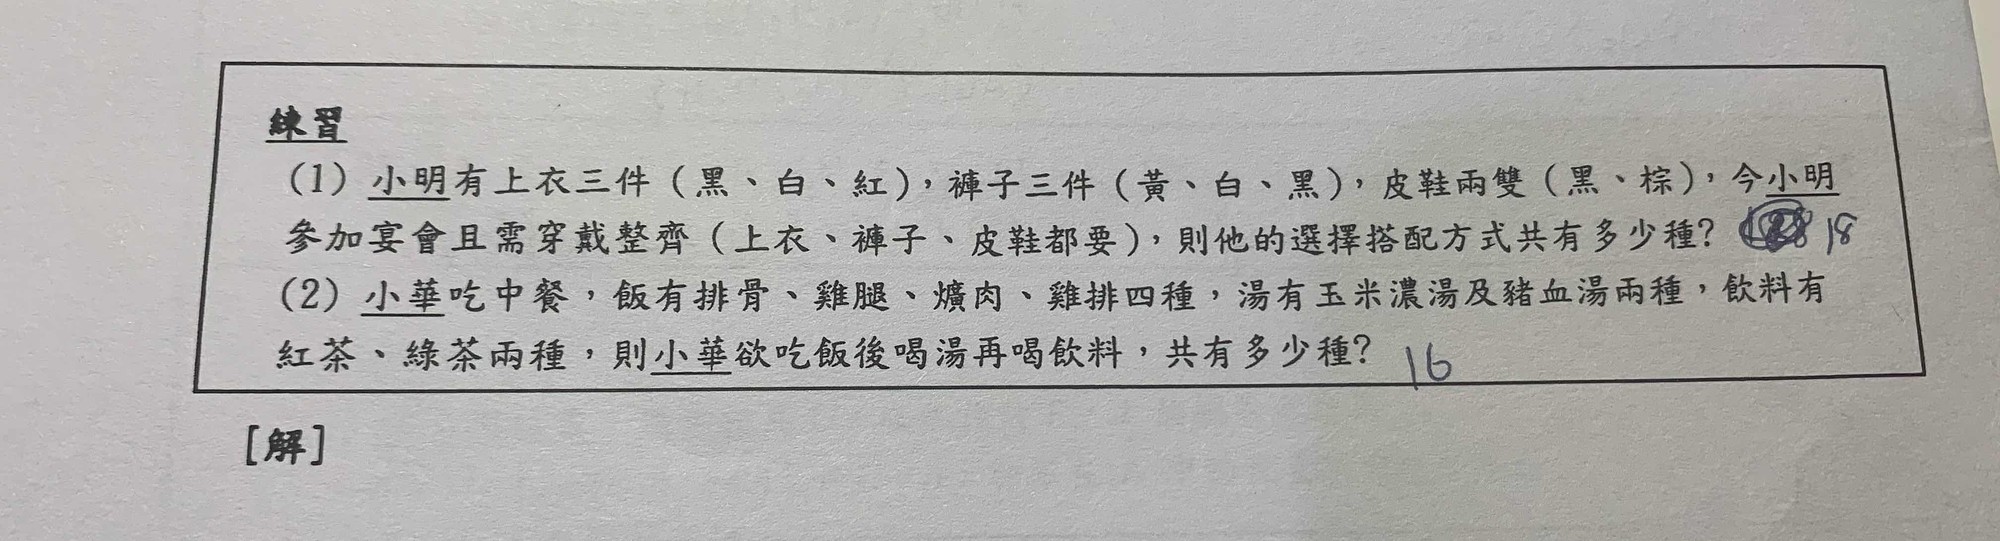 練習
(1) 小明有上衣三件(黑、白、紅),褲子三件(黃、白、黑),皮鞋兩雙(黑、棕),今小明
參加宴會且需穿戴整齊(上衣、褲子、皮鞋都要),則他的選擇搭配方式共有多少種? 18
(2) 小華吃中餐,飯有排骨、雞腿、爌肉、雞排四種,湯有玉米濃湯及豬血湯兩種,飲料有
紅茶、綠茶兩種,則小華欲吃飯後喝湯再喝飲料,共有多少種? 16
[解]